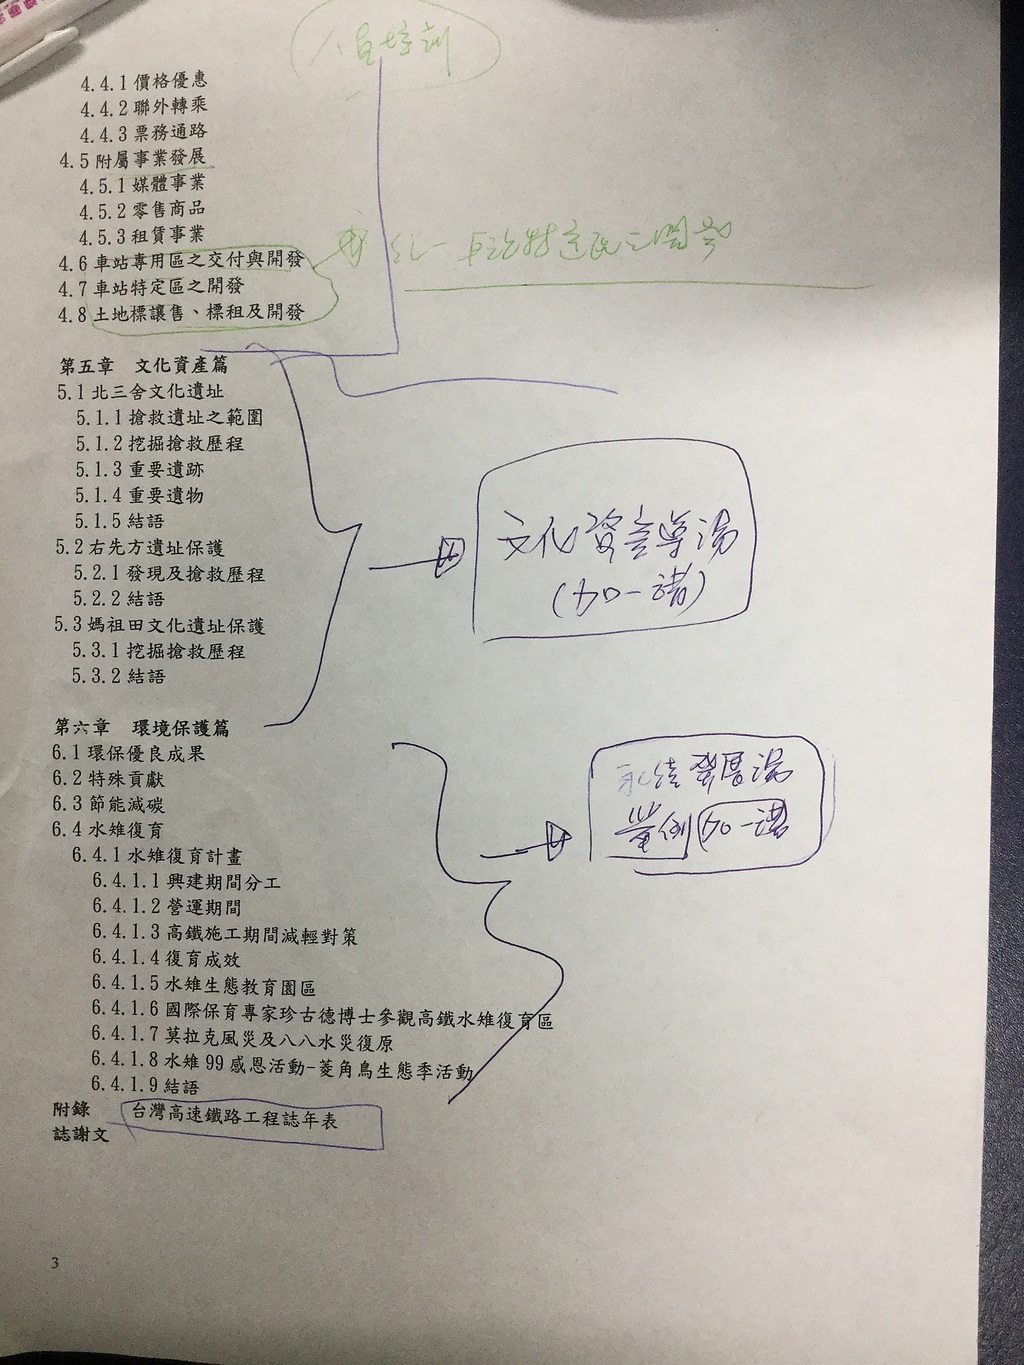 人員培訓
4.4.1 價格優惠
4.4.2 聯外轉乘
4.4.3 票務通路
4.5 附屬事業發展
4.5.1 媒體事業
4.5.2 零售商品
4.5.3 租賃事業
4.6 車站專用區之交付與開發
4.7 車站特定區之開發
4.8 土地標讓售、標租及開發
第五章 文化資產篇
5.1 北三舍文化遺址
5.1.1 搶救遺址之範圍
5.1.2 挖掘搶救歷程
5.1.3 重要遺跡
5.1.4 重要遺物
5.1.5 結語
5.2 右先方遺址保護
5.2.1 發現及搶救歷程
5.2.2 結語
5.3 媽祖田文化遺址保護
5.3.1 挖掘搶救歷程
5.3.2 結語
文化資
(加一
第六章 環境保護篇
6.1 環保優良成果
6.2 特殊貢獻
6.3 節能減碳
6.4 水雉復育
6.4.1 水雉復育計畫
6.4.1.1 興建期間分工
6.4.1.2 營運期間
6.4.1.3 高鐵施工期間減輕對策
6.4.1.4 復育成效
6.4.1.5 水雉生態教育園區
6.4.1.6 國際保育專家珍古德博士參觀高鐵水雉復育區
6.4.1.7 莫拉克風災及八八水災復原
6.4.1.8 水雉 99 感恩活動-菱角鳥生態季活動
6.4.1.9 結語
永續發展
附錄 台灣高速鐵路工程誌年表
誌謝文
3